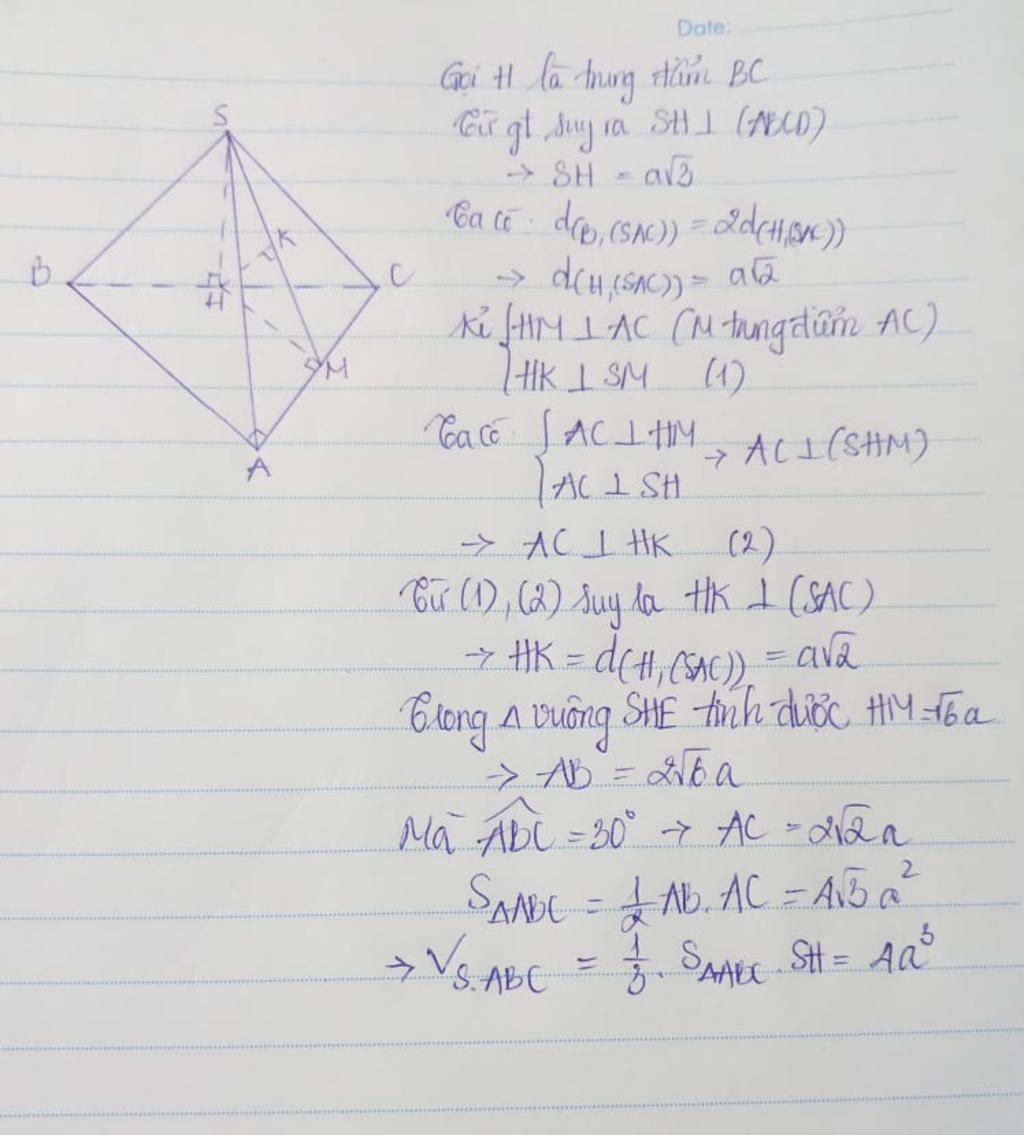 Date:
Gọi H là trung điểm BC
Từ gt suy ra SH ⊥ (ABCD)
→ SH = a√3
Ta có: d(B,(SAC)) = 2d(H,(SAC))
→ d(H,(SAC)) = a√2
Kẻ { HM ⊥ AC (M trung điểm AC)
HK ⊥ SM (1)
Ta có: { AC ⊥ HM → AC ⊥ (SHM)
AC ⊥ SH
→ AC ⊥ HK (2)
Từ (1), (2) suy ra HK ⊥ (SAC)
→ HK = d(H,(SAC)) = a√2
Trong Δ vuông SHE tính được HM = √6a
→ AB = 2√6a
Mà ABC = 30° → AC = 2√2a
SΔABC = 1/2 AB.AC = 4√3a²
→ VS.ABC = 1/3 . SΔABC . SH = 4a³
S
K
B
H
C
M
A